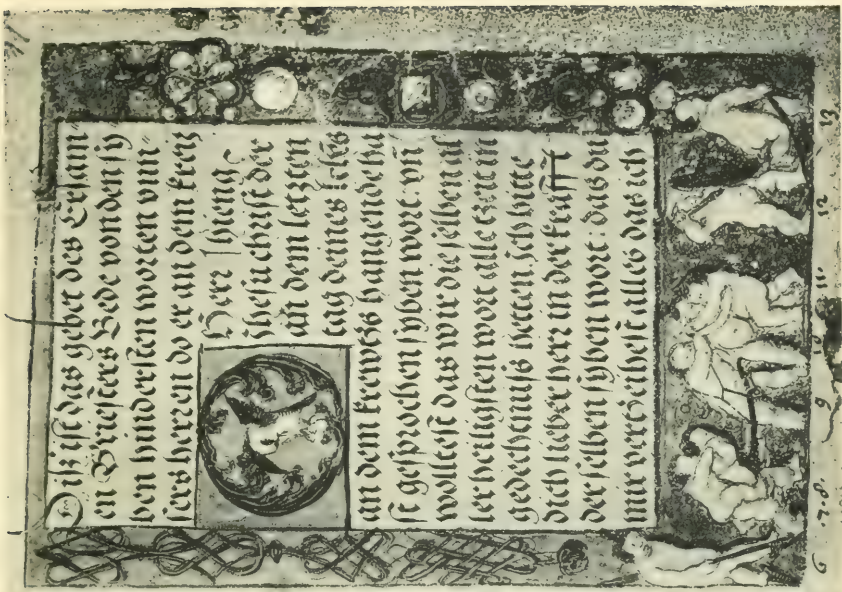 Ditz ist das gebet des Ersam-
en Briesters Bede von den sy
ben hindersten worten vnn-
sers herren do er an dem kreutz
Herr hieng
Jhesu christ der
an dem letzten
tag deines lebēs
an dem krewtz hangende ha
st gesprochen syben wort vn̄
wolltest das wir die selben al
lerheiligsten wort alle tzeit in
gedechtniß hetten Ich bitte
dich lieber herr in der krafft
der selben syben wort: das du
mir vertzeihest alles das ich
6 7. 8. 9 10 11 12 13